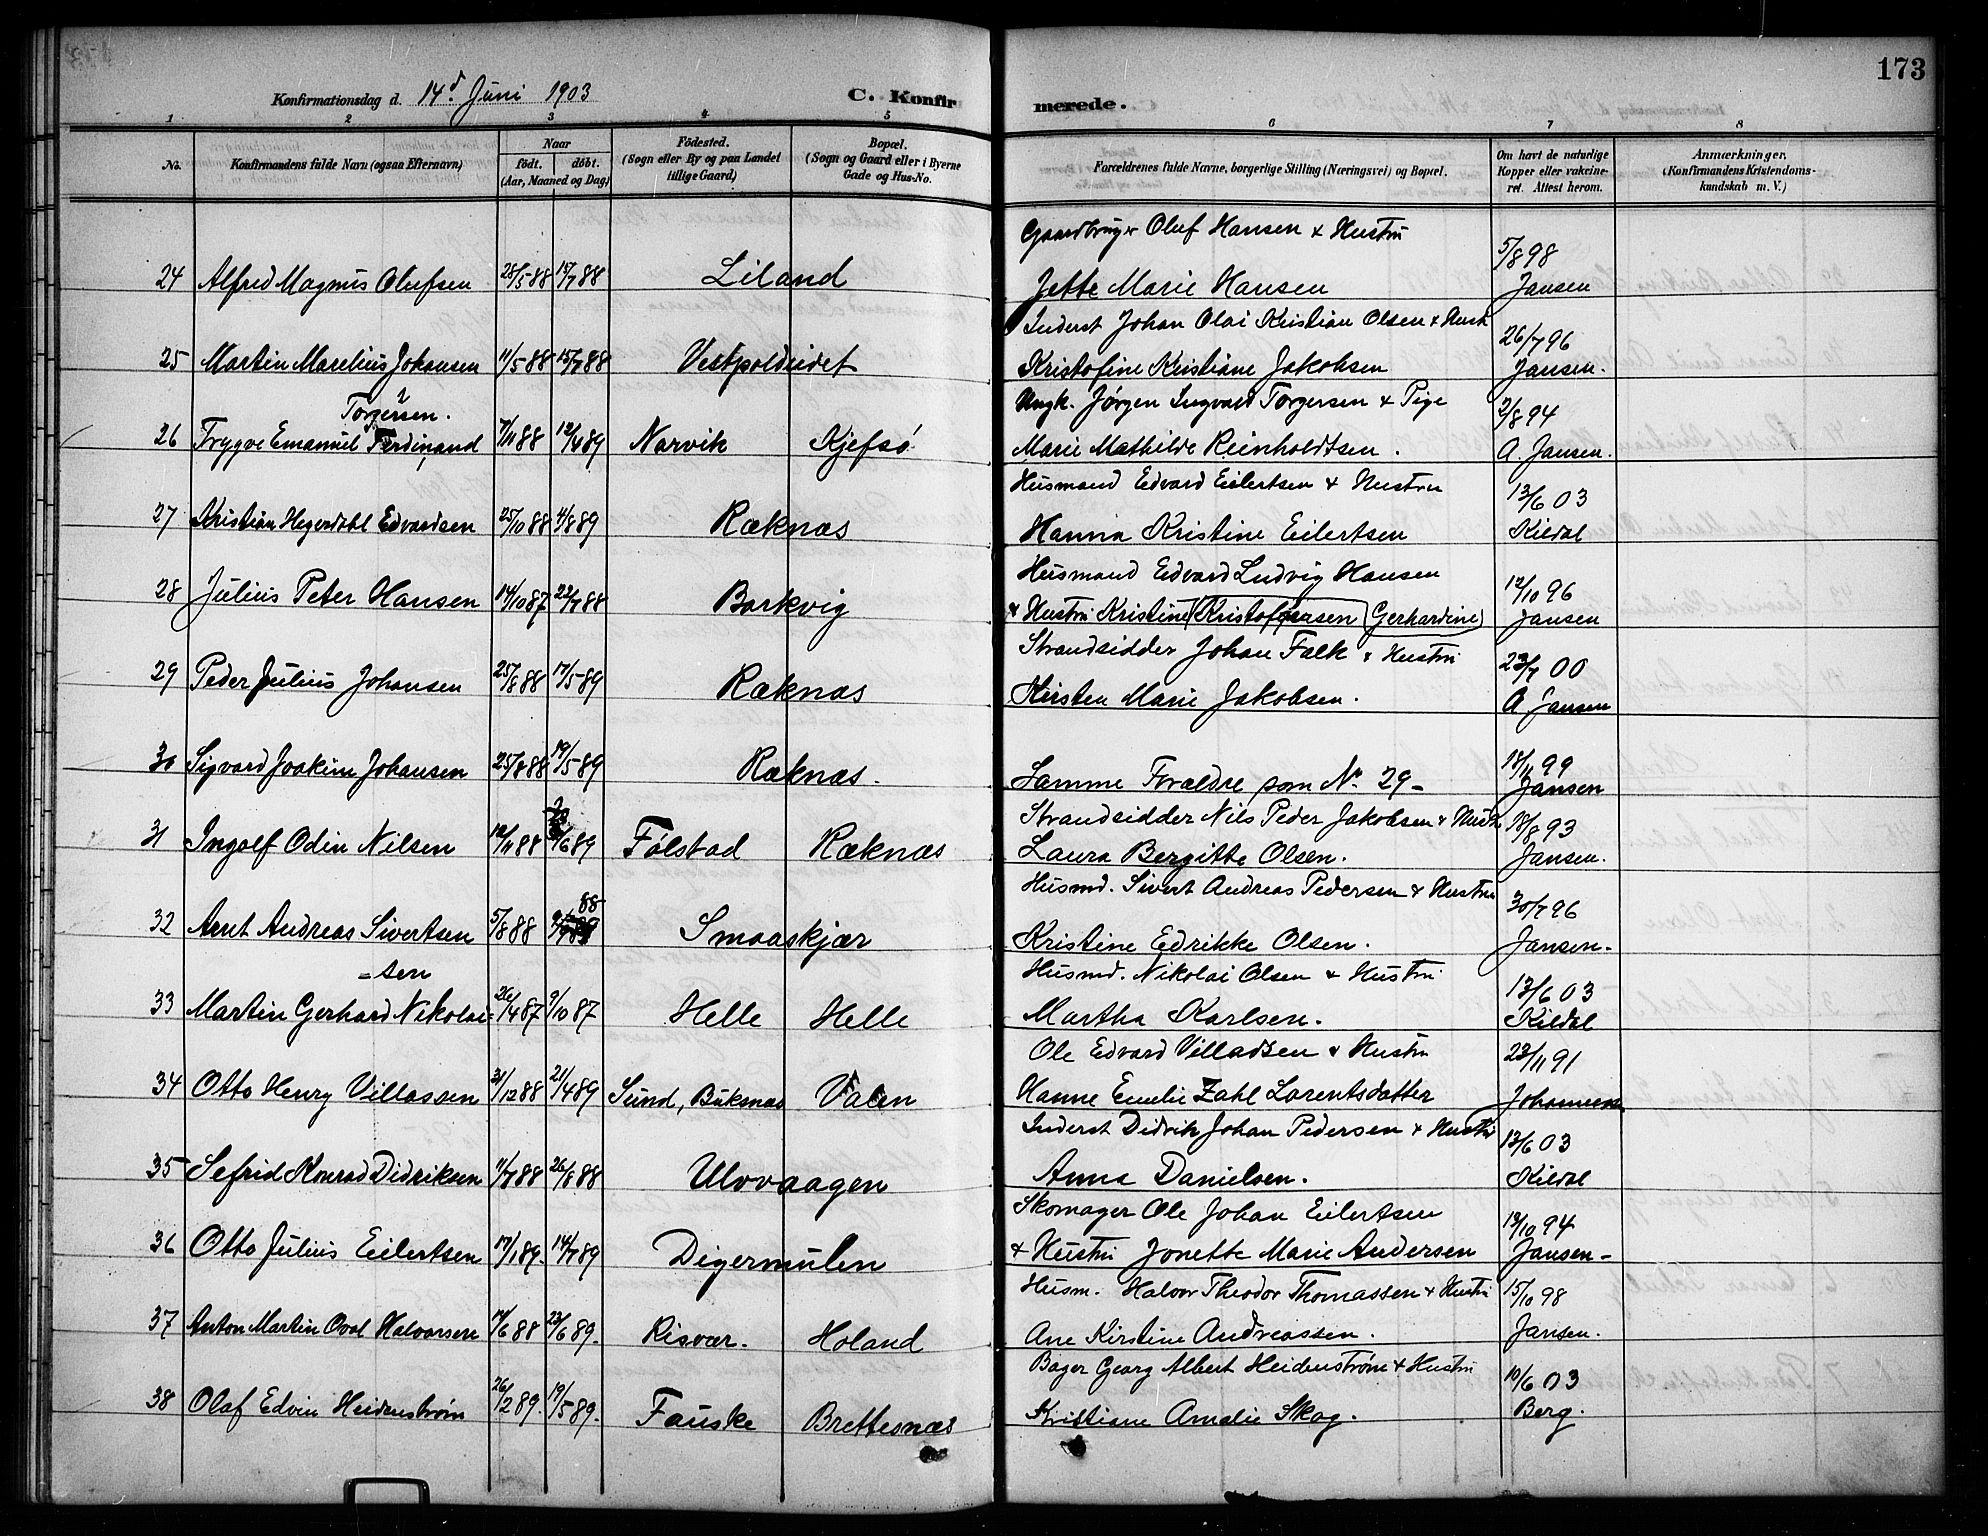 173
Konfirmationsdag d. 14d. Juni 1903
C. Konfir
merede.
1 2 3 4 5 6 7 8
No.
Konfirmandens fulde Navn (ogsaa Efternavn)
Naar
født. døbt.
(Aar, Maaned og Dag)
Fødested.
(Sogn eller By og paa Landet
tillige Gaard)
Bopæl.
(Sogn og Gaard eller i Byerne
Gade og Hus-No.
Forældrenes fulde Navne, borgerlige Stilling (Næringsvei) og Bopæl.
Om havt de naturlige
Kopper eller vakcine-
ret. Attest herom.
Anmærkninger.
(Konfirmandens Kristendoms-
kundskab m. V.)
Gaardbruger Oluf Hansen & Hustru
5/8 98
24 Alfred Magnus Olufsen 28/5 88 15/7 88 Liland Jette Marie Hansen Jansen
Inderst Johan Olai Kristian Olsen & Hust
26/7 96
25 Martin Marelius Johansen 11/5 88 15/7 88 Vestpoldeidet Kristofine Kristiane Jakobsen Jansen.
Torgersen.
Ungk. Jørgen Ingvard Torgersen & Pige
2/8 94
26 Trygve Emanuel Ferdinand 7/11 88 12/4 89 Narvik Kjefsø Marie Mathilde Reinholdtsen. A. Jansen.
Husmand Edvard Eilertsen & Hustru
13/6 03
27 Kristian Hegerdahl Edvardsen 25/10 88 4/8 89 Ræknæs Hanna Kristine Eilertsen Kildal
Husmand Edvard Ludvig Hansen
12/10 96
28 Julius Peter Hansen 14/10 87 22/7 88 Barkvig & Hustru Kristine Kristofersen Gerhardine Jansen
Strandsidder Johan Falk & Hustru
23/7 00
29 Peder Julius Johansen 25/8 88 17/5 89 Ræknæs Kirsten Marie Jakobsen. A Jansen
30 Sigvard Joakim Johansen 25/8 88 19/5 89 Ræknæs. Samme Forældre som No. 29 - 18/11 99
Jansen
Strandsidder Nils Peder Jakobsen & Hust
18/8 93
31 Ingolf Odin Nilsen 12/11 88 /6 89 Følstad Ræknæs Laura Bergitte Olsen. Jansen.
Husmd. Sivert Andreas Pedersen & Hustru
30/7 96
88
32 Arnt Andreas Sivertsen 5/8 88 Smaaskjær Kristine Edrikke Olsen. Jansen.
=sen
Husmd. Nikolai Olsen & Hustru
13/6 03
33 Martin Gerhard Nikolai= 26/4 87 9/10 87 Helle Helle Martha Karlsen. Kildal
Ole Edvard Villadsen & Hustru
22/11 91
34 Otto Henry Villassen 31/12 88 21/4 89 Sund, Buksnæs Valen Hanne Emelie Zahl Larentsdatter Johannesen
Inderst Didrik Johan Pedersen & Hustru
13/6 03
35 Sefrid Konrad Didriksen 11/7 88 26/8 88 Ulvvaagen Anna Danielsen. Kildal
Skomager Ole Johan Eilertsen
19/10 94
36 Otto Julius Eilertsen 17/1 89. 14/7 89 Digermulen & Hustru Jonette Marie Andersen Jansen -
Husm. Halvor Theodor Thomassen & Hustru
15/10 98
37 Anton Martin Oval Halvorsen 17/6 88 23/6 89. Risvær. Holand Ane Kirstine Andreassen. Jansen.
Bager Georg Albert Heidenstrøm & Hustru
10/6 03
38 Olaf Edvin Heidenstrøm 26/2 89. 19/5 89. Fauske Brettesnæs Kristiane Amalie Skog. Berg.